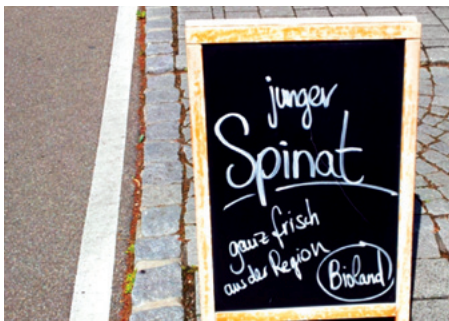 junger
Spinat
ganz frisch
aus der Region
Bioland